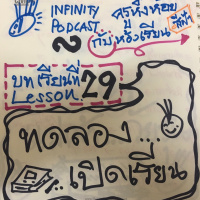 INFINITY
PODCAST
กับ
ครูหิ่งห้อย
หัวงเรียน
สีฟ้า
บทเรียนที่ 29
Lesson
ทดลอง...
...เปิดเรียน